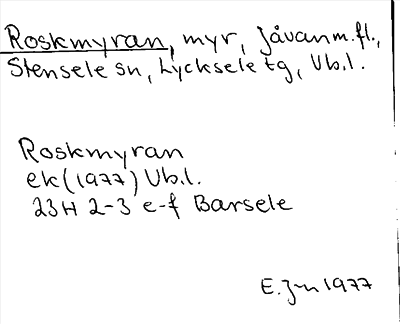 Roskmyran, myr, Jåvan m.fl.,
Stensele sn, Lycksele tg, Vb.l.
Roskmyran
ek (1977) Vb.l.
23H 2-3 e-f Barsele
E. Jn 1977